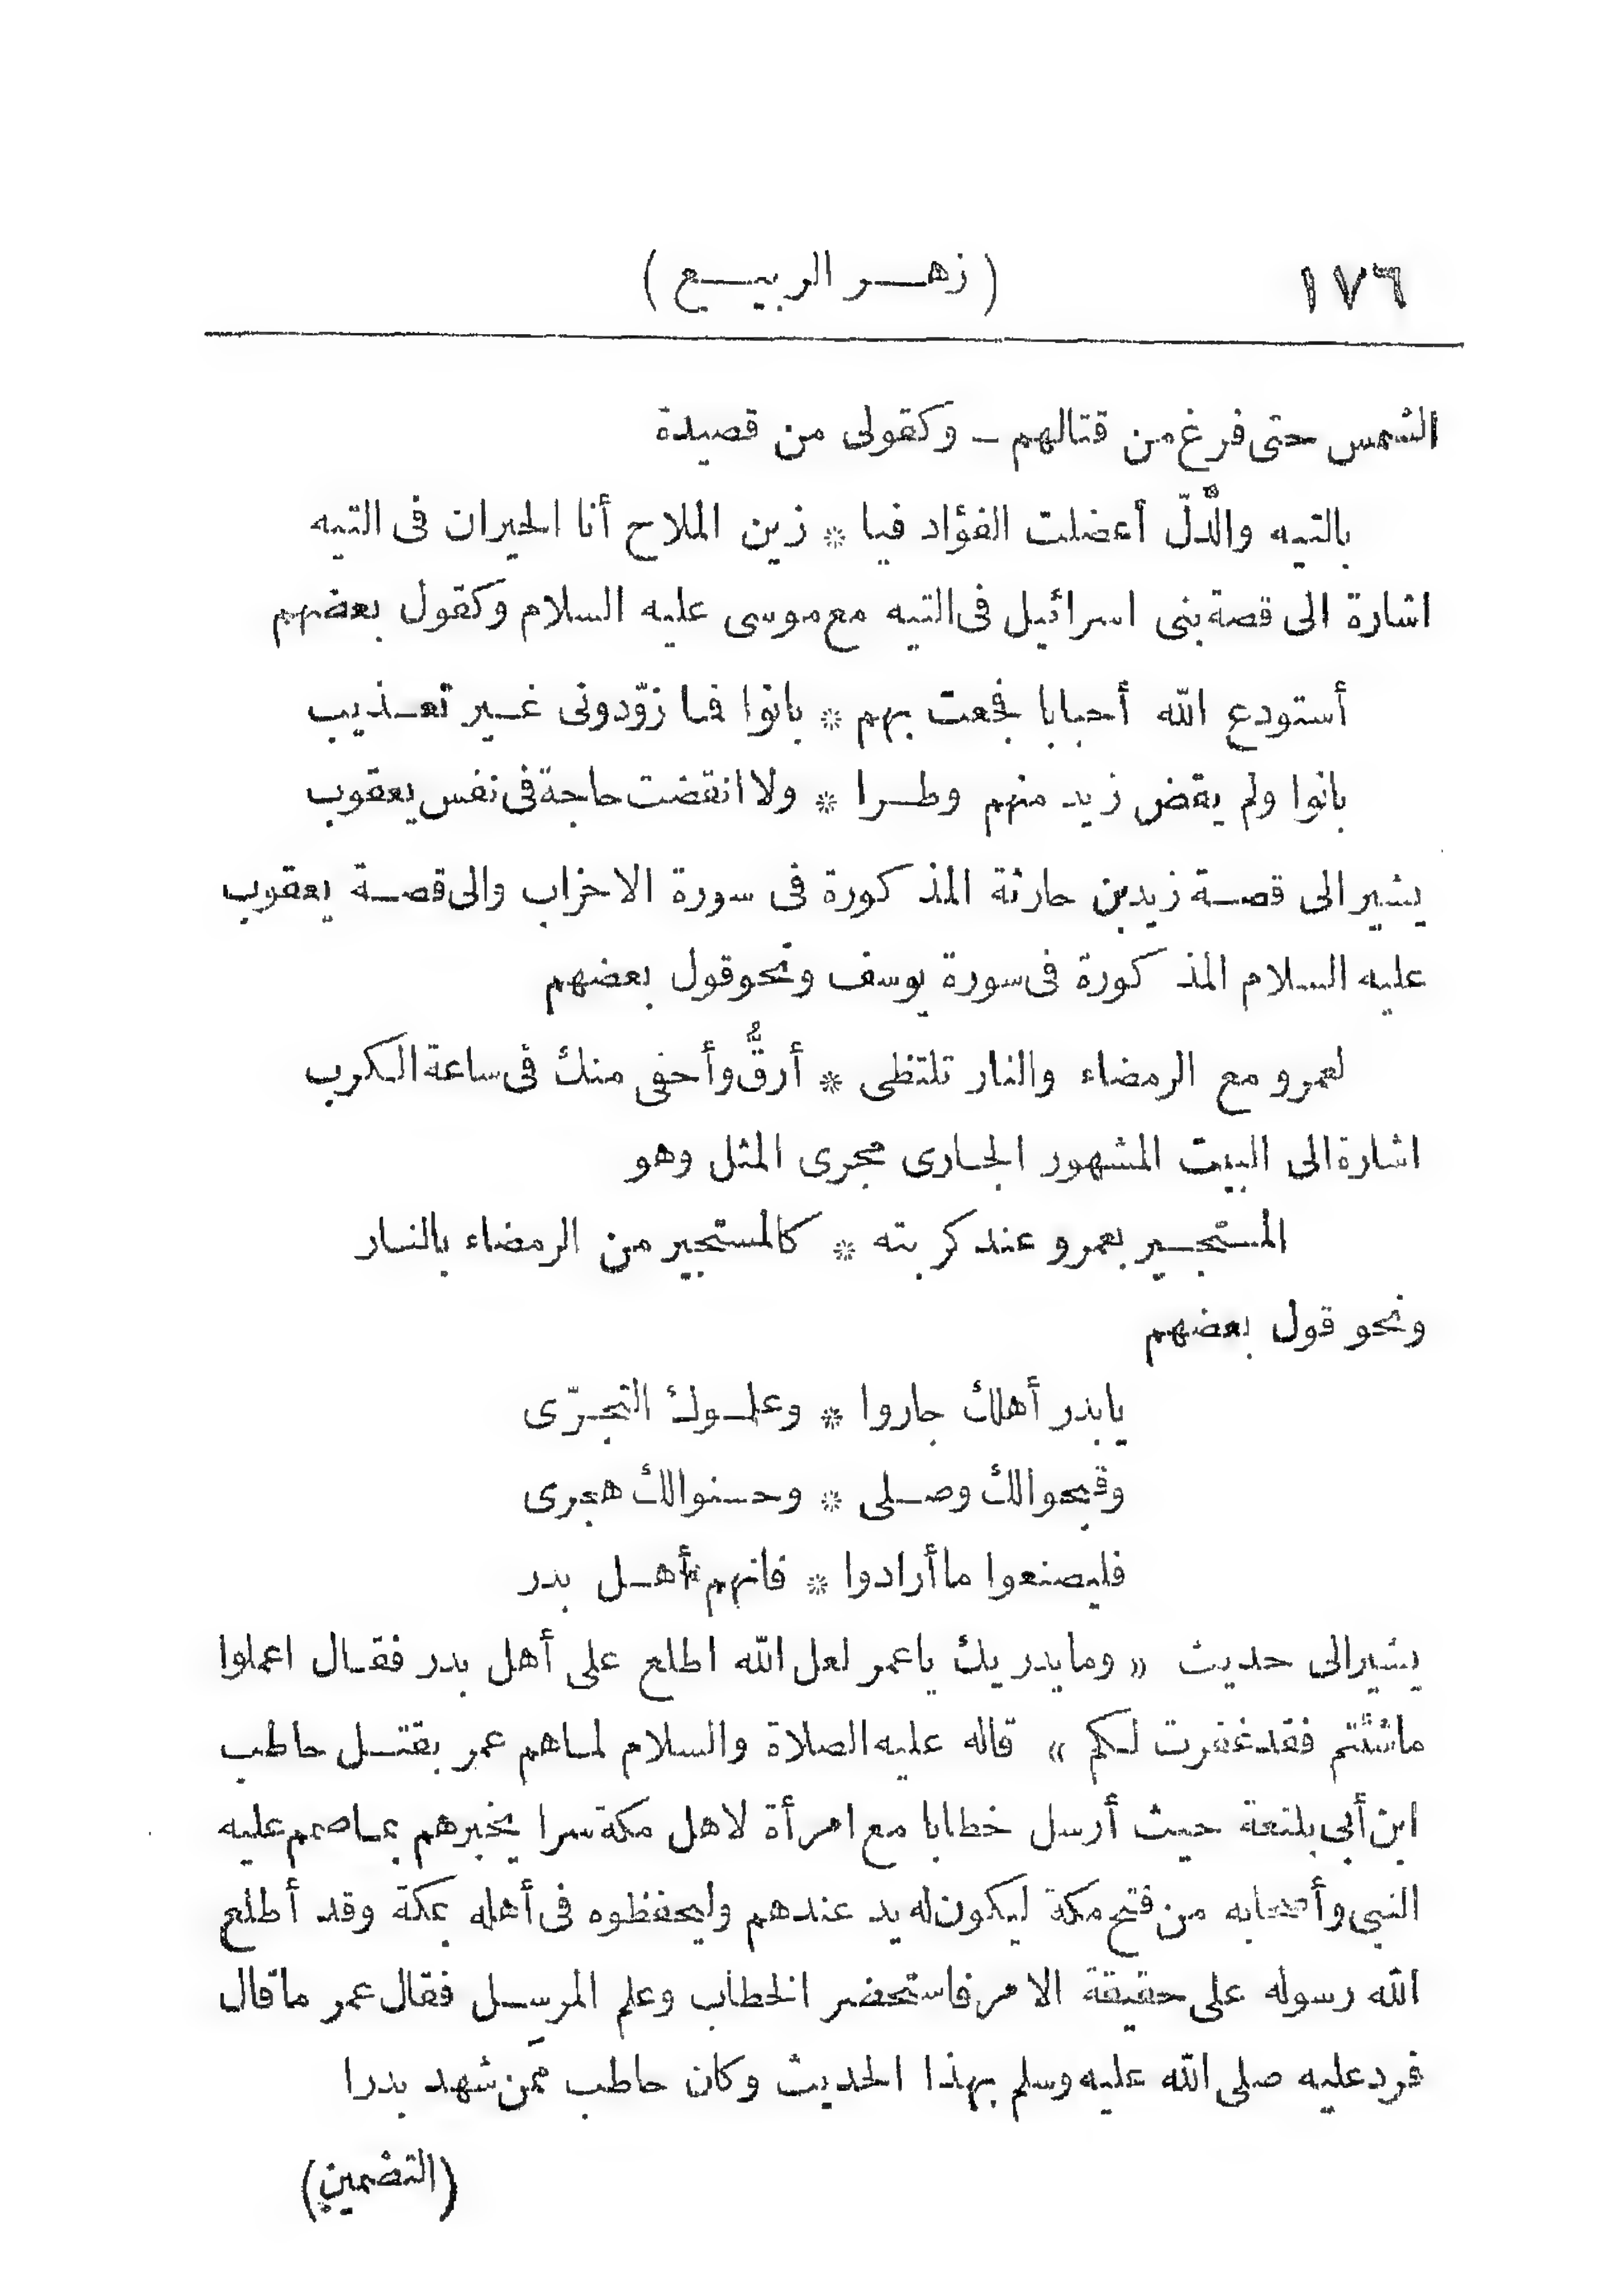 ١٧٦ (زهر الربيع)
الشمس حتى فرغ من قتالهم – وكقولى من قصيدة
بالتيه والدَّلّ أعضلت الفؤاد فيا * زين الملاح أنا الحيران فى التيه
اشارة الى قصة بنى اسرائيل فى التيه مع موسى عليه السلام وكقول بعضهم
أستودع الله أحبابا فجعت بهم * بانوا فما زوّدونى غير تعذيب
بانوا ولم يقض زيد منهم وطرا * ولا انقضت حاجة فى نفس يعقوب
يشير الى قصة زيد بن حارثة المذكورة فى سورة الاحزاب والى قصة يعقوب
عليه السلام المذكورة فى سورة يوسف ونحو قول بعضهم
لعمرو مع الرمضاء والنار تلتظى * أرقُّ وأحفى منك فى ساعة الكرب
اشارة الى البيت المشهور الجارى مجرى المثل وهو
المستجير بعمرو عند كربته * كالمستجير من الرمضاء بالنار
ونحو قول بعضهم
يا بدر أهلك جاروا * وعلموك التجرّى
وقبحوا لك وصلى * وحسنوا لك هجرى
فليصنعوا ما أرادوا * فانهم أهل بدر
يشير الى حديث « وما يدريك يا عمر لعل الله اطلع على أهل بدر فقال اعملوا
ما شئتم فقد غفرت لكم » قاله عليه الصلاة والسلام لما هم عمر بقتل حاطب
ابن أبى بلتعة حيث أرسل خطابا مع امرأة لاهل مكة سرا يخبرهم بما صمم عليه
النبى وأصحابه من فتح مكة ليكون له يد عندهم وليحفظوه فى أهله بمكة وقد أطلع
الله رسوله على حقيقة الامر فاستحضر الخطاب وعلم المرسِل فقال عمر ما قال
فرد عليه صلى الله عليه وسلم بهذا الحديث وكان حاطب ممن شهد بدرا
(التضمين)